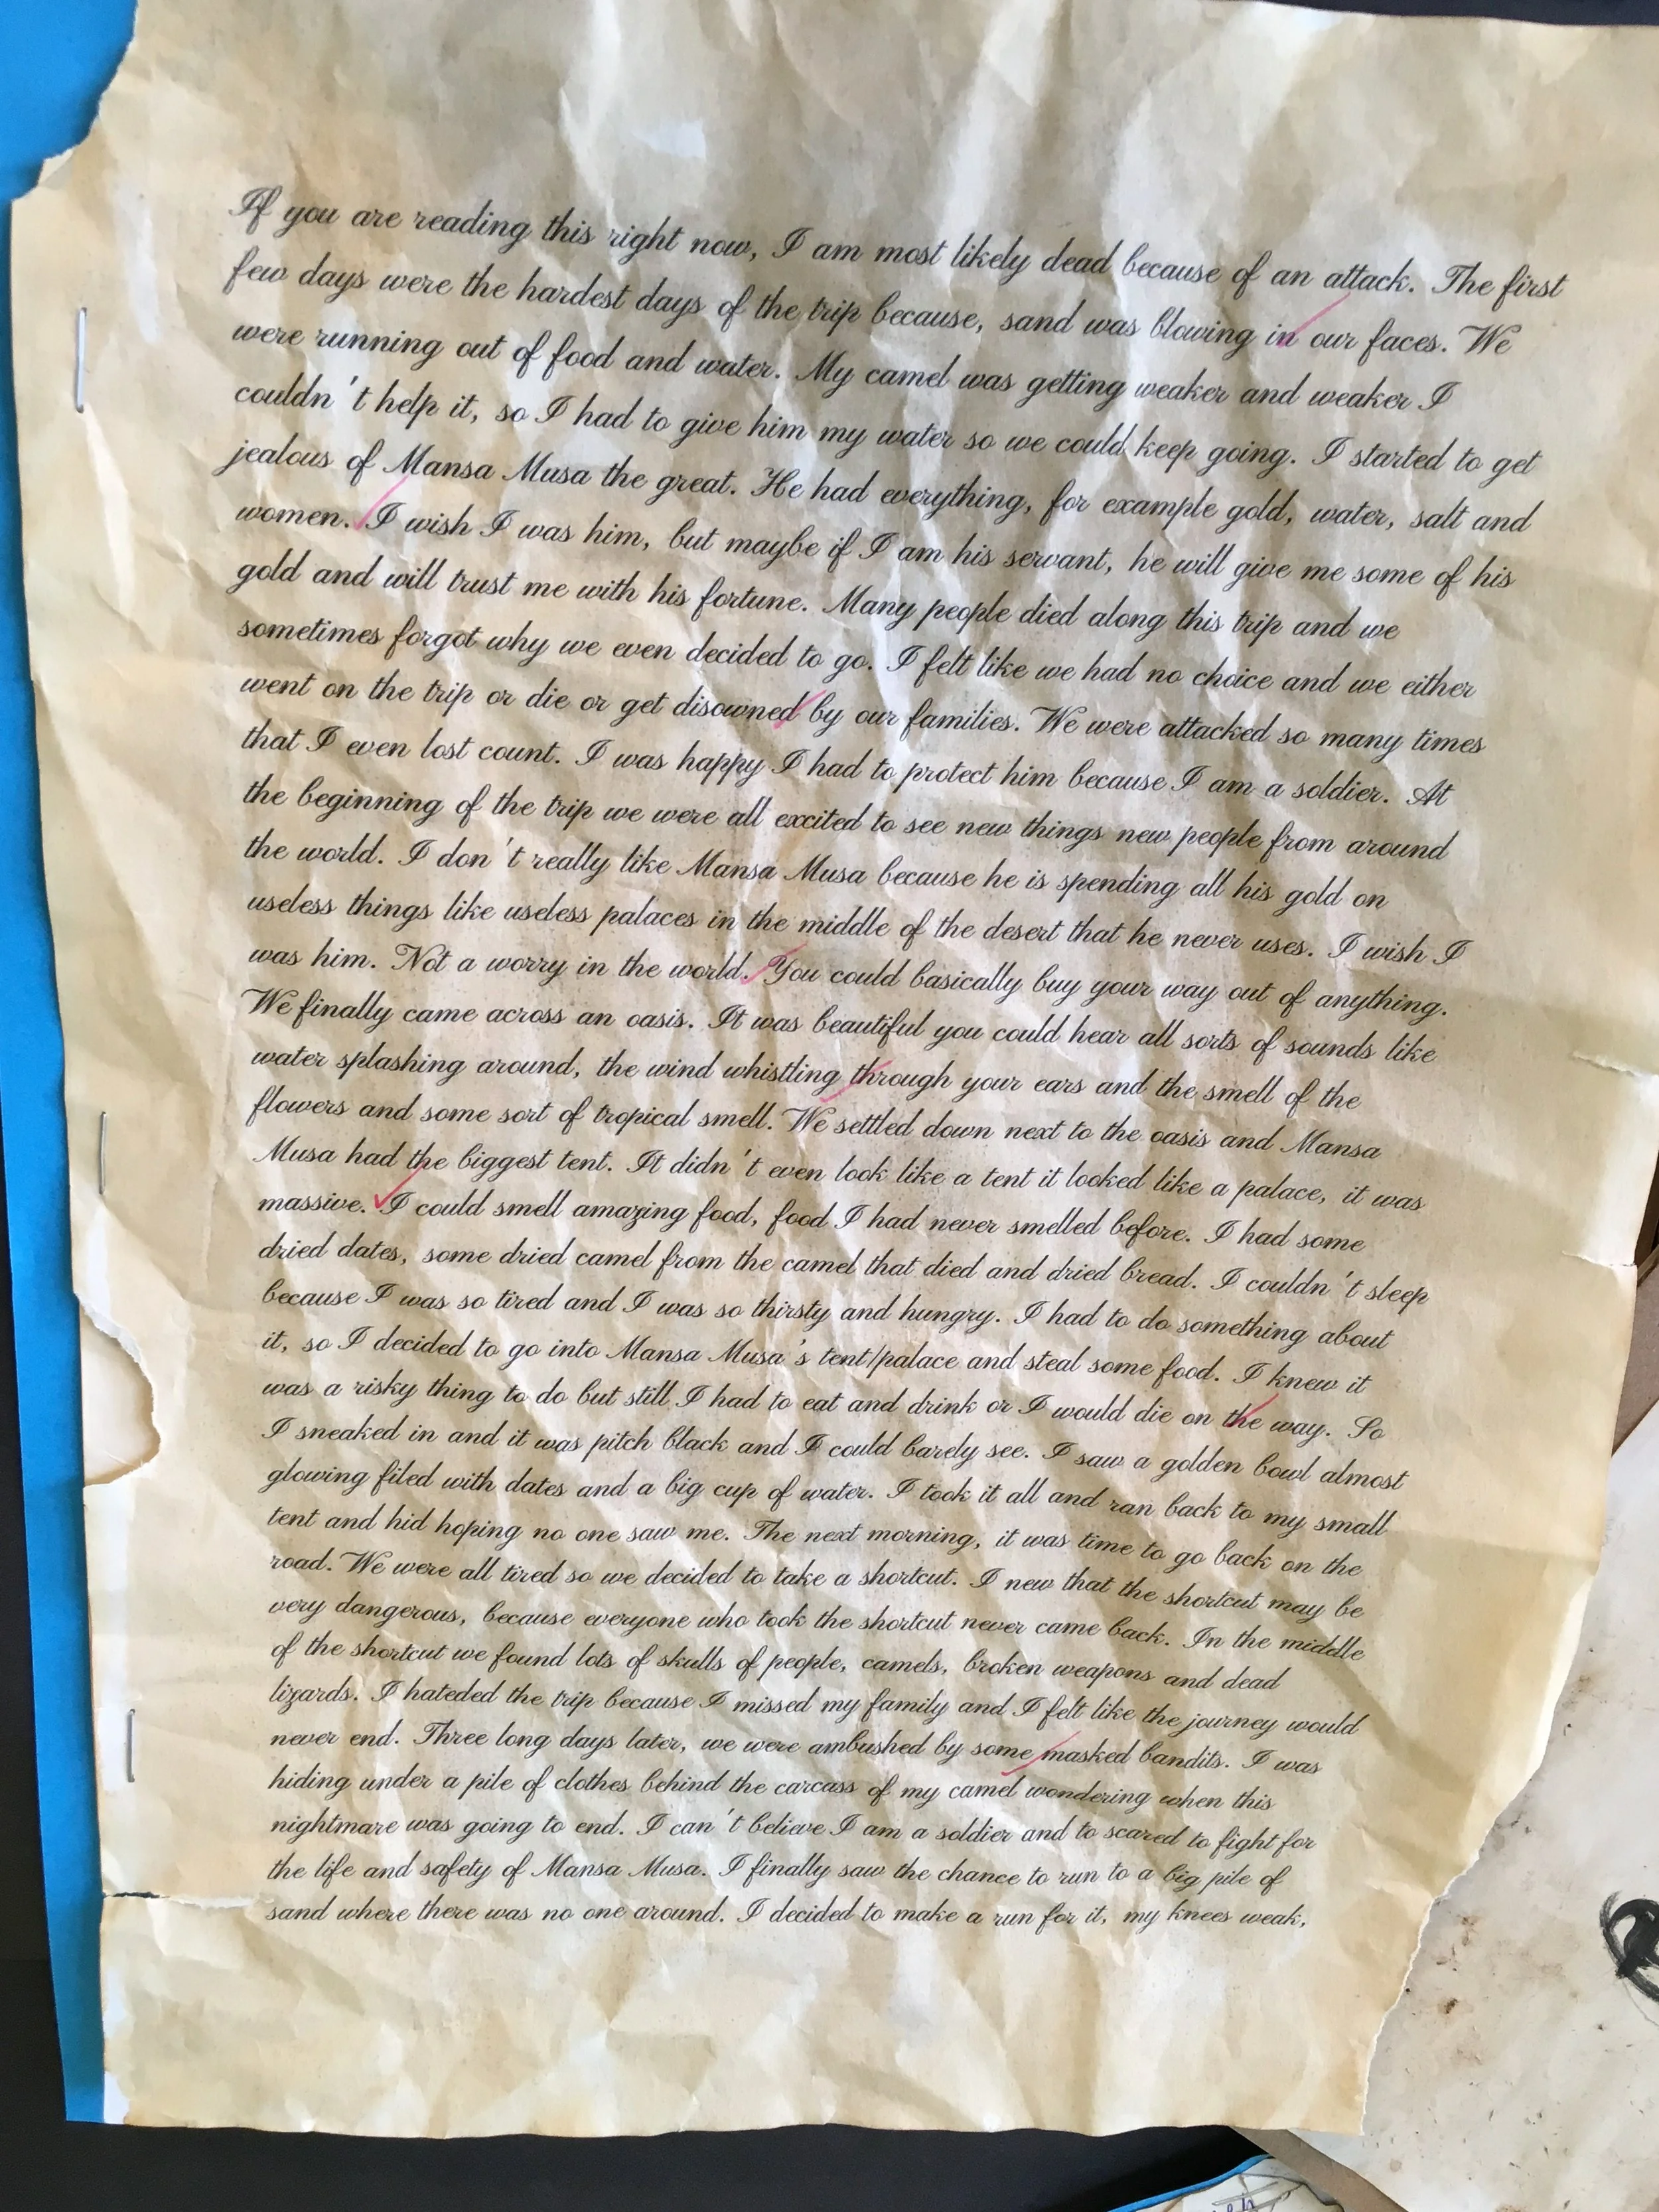 If you are reading this right now, I am most likely dead because of an attack. The first
few days were the hardest days of the trip because, sand was blowing in our faces. We
were running out of food and water. My camel was getting weaker and weaker I
couldn't help it, so I had to give him my water so we could keep going. I started to get
jealous of Mansa Musa the great. He had everything, for example gold, water, salt and
women. I wish I was him, but maybe if I am his servant, he will give me some of his
gold and will trust me with his fortune. Many people died along this trip and we
sometimes forgot why we even decided to go. I felt like we had no choice and we either
went on the trip or die or get disowned by our families. We were attacked so many times
that I even lost count. I was happy I had to protect him because I am a soldier. At
the beginning of the trip we were all excited to see new things new people from around
the world. I don't really like Mansa Musa because he is spending all his gold on
useless things like useless palaces in the middle of the desert that he never uses. I wish I
was him. Not a worry in the world. You could basically buy your way out of anything.
We finally came across an oasis. It was beautiful you could hear all sorts of sounds like
water splashing around, the wind whistling through your ears and the smell of the
flowers and some sort of tropical smell. We settled down next to the oasis and Mansa
Musa had the biggest tent. It didn't even look like a tent it looked like a palace, it was
massive. I could smell amazing food, food I had never smelled before. I had some
dried dates, some dried camel from the camel that died and dried bread. I couldn't sleep
because I was so tired and I was so thirsty and hungry. I had to do something about
it, so I decided to go into Mansa Musa's tent/palace and steal some food. I knew it
was a risky thing to do but still I had to eat and drink or I would die on the way. So
I sneaked in and it was pitch black and I could barely see. I saw a golden bowl almost
glowing filed with dates and a big cup of water. I took it all and ran back to my small
tent and hid hoping no one saw me. The next morning, it was time to go back on the
road. We were all tired so we decided to take a shortcut. I new that the shortcut may be
very dangerous, because everyone who took the shortcut never came back. In the middle
of the shortcut we found lots of skulls of people, camels, broken weapons and dead
lizards. I hateded the trip because I missed my family and I felt like the journey would
never end. Three long days later, we were ambushed by some masked bandits. I was
hiding under a pile of clothes behind the carcass of my camel wondering when this
nightmare was going to end. I can't believe I am a soldier and to scared to fight for
the life and safety of Mansa Musa. I finally saw the chance to run to a big pile of
sand where there was no one around. I decided to make a run for it, my knees weak,